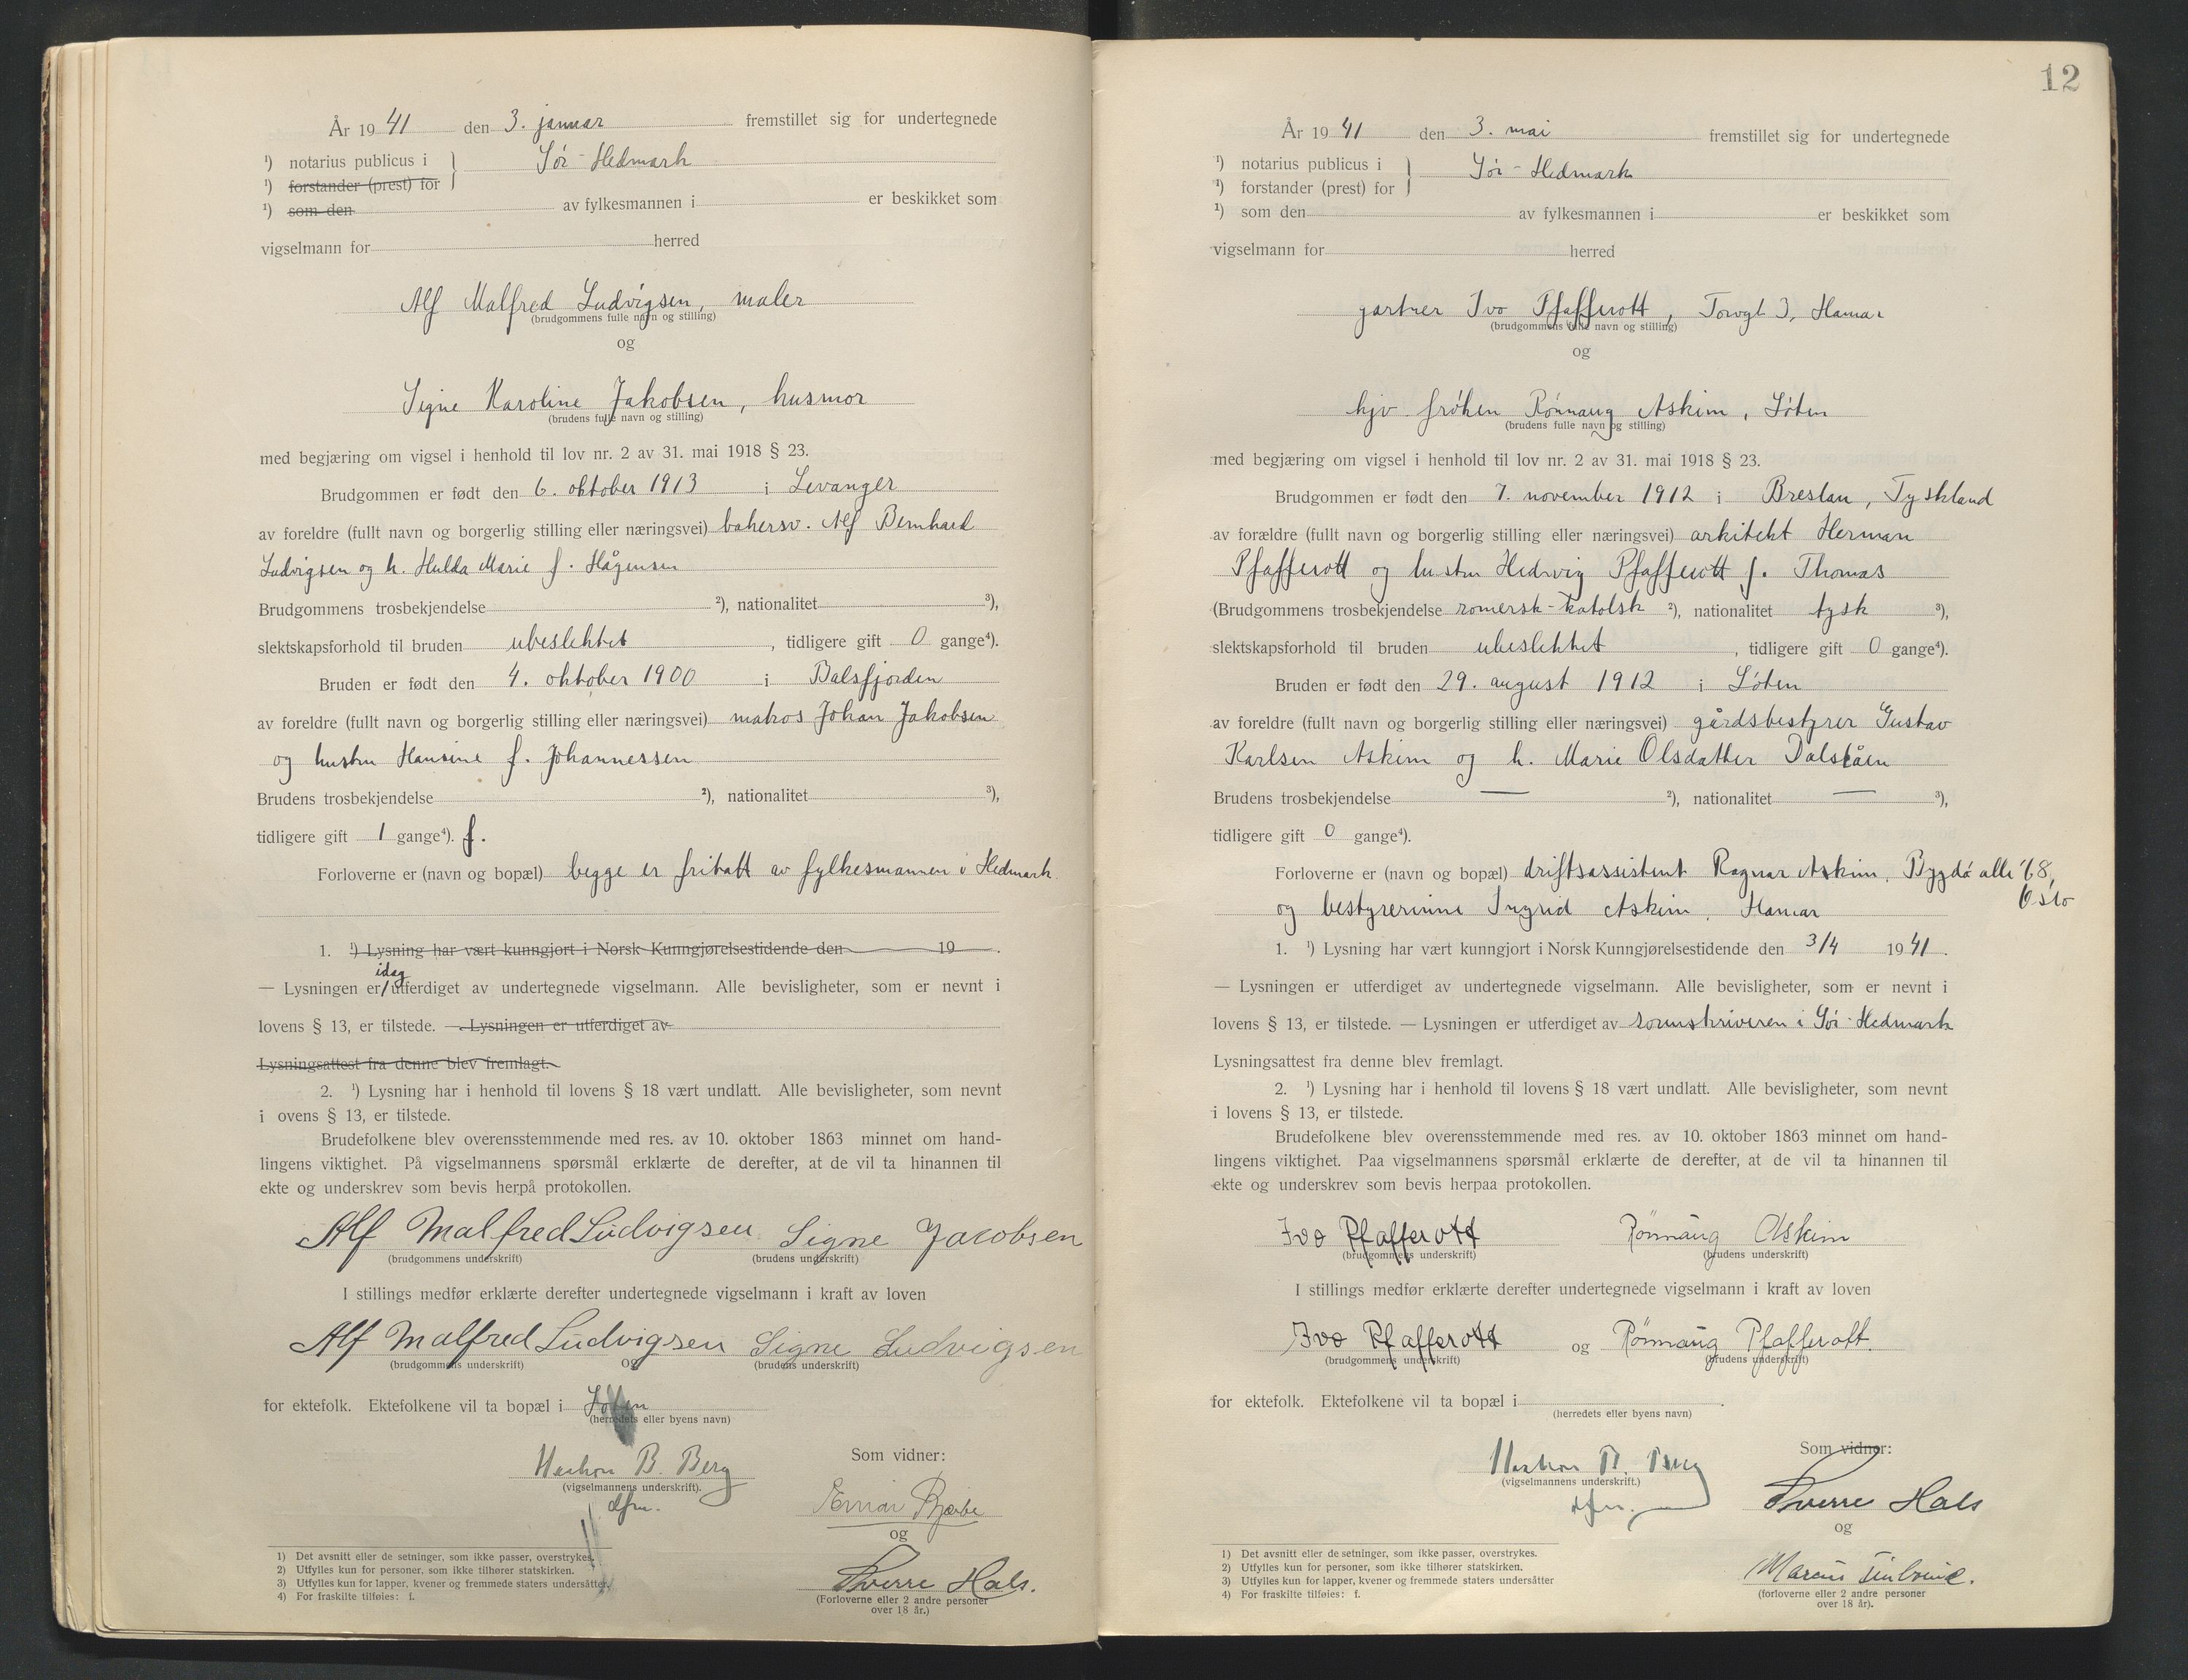 År 19 41 den 3. januar fremstillet sig for undertegnede
¹) notarius publicus i } Sör-Hedmark
¹) forstander (prest) for
¹) som den av fylkesmannen i er beskikket som
vigselmann for herred
Alf Malfred Ludvigsen, maler
(brudgommens fulle navn og stilling)
og
Signe Karoline Jakobsen, husmor
(brudens fulle navn og stilling)
med begjæring om vigsel i henhold til lov nr. 2 av 31. mai 1918 § 23.
Brudgommen er født den 6. oktober 1913 i Levanger
av foreldre (fullt navn og borgerlig stilling eller næringsvei) bakersv. Alf Bernhard
Ludvigsen og h. Hulda Marie f. Hågensen
Brudgommens trosbekjendelse ²), nationalitet ³),
slektskapsforhold til bruden ubeslektet, tidligere gift 0 gange⁴).
Bruden er født den 4. oktober 1900 i Balsfjorden
av foreldre (fullt navn og borgerlig stilling eller næringsvei) matros Johan Jakobsen
og hustru Hansine f. Johannessen
Brudens trosbekjendelse ²), nationalitet ³),
tidligere gift 1 gange⁴). f.
Forloverne er (navn og bopæl) begge er fritatt av fylkesmannen i Hedmark
1. ¹) Lysning har vært kunngjort i Norsk Kunngjørelsestidende den 19 .
idag
— Lysningen er/utferdiget av undertegnede vigselmann. Alle bevisligheter, som er nevnt i
lovens § 13, er tilstede. — Lysningen er utferdiget av
Lysningsattest fra denne blev fremlagt.
2. ¹) Lysning har i henhold til lovens § 18 vært undlatt. Alle bevisligheter, som nevnt
i ovens § 13, er tilstede.
Brudefolkene blev overensstemmende med res. av 10. oktober 1863 minnet om hand-
lingens viktighet. På vigselmannens spørsmål erklærte de derefter, at de vil ta hinannen til
ekte og underskrev som bevis herpå protokollen.
Alf Malfred Ludvigsen Signe Jacobsen
(brudgommens underskrift) (brudens underskrift)
I stillings medfør erklærte derefter undertegnede vigselmann i kraft av loven
Alf Malfred Ludvigsen Signe Ludvigsen
(brudgommens underskrift) og (brudens underskrift)
for ektefolk. Ektefolkene vil ta bopæl i Löten
(herredets eller byens navn)
Som vidner:
Haakon B. Berg
(vigselmannens underskrift).
dfm.
Einar Bjerke
og
Sverre Hals.
(Forloverne eller 2 andre personer
over 18 år.)
1) Det avsnitt eller de setninger, som ikke passer, overstrykes.
2) Utfylles kun for personer, som ikke tilhører statskirken.
3) Utfylles kun for lapper, kvener og fremmede staters undersåtter.
4) For fraskilte tilføies: f.
12
År 19 41 den 3. mai fremstillet sig for undertegnede
¹) notarius publicus i } Sör-Hedmark
¹) forstander (prest) for
¹) som den av fylkesmannen i er beskikket som
vigselmann for herred
gartner Ivo Pfafferott, Torvgt 3, Hamar
(brudgommens fulle navn og stilling)
og
hjv. fröken Rönnaug Askim, Löten
(brudens fulle navn og stilling)
med begjæring om vigsel i henhold til lov nr. 2 av 31. mai 1918 § 23.
Brudgommen er født den 7. november 1912 i Breslau, Tyskland
av forældre (fullt navn og borgerlig stilling eller næringsvei) arkitekt Herman
Pfafferott og hustru Hedwig Pfafferott f. Thomas
(Brudgommens trosbekjendelse romersk-katolsk ²), nationalitet tysk ³),
slektskapsforhold til bruden ubeslektet, tidligere gift 0 gange⁴).
Bruden er født den 29. august 1912 i Löten
av foreldre (fullt navn og borgerlig stilling eller næringsvei) gårdsbestyrer Gustav
Karlsen Askim og h. Marie Olsdatter Dalslåen
Brudens trosbekjendelse — ²), nationalitet — ³),
tidligere gift 0 gange⁴).
Forloverne er (navn og bopæl) driftsassistent Ragnar Askim, Bygdö alle 68,
Oslo
og bestyrerinne Ingrid Askim, Hamar
1. ¹) Lysning har vært kunngjort i Norsk Kunngjørelsestidende den 3/4 19 41.
— Lysningen er utferdiget av undertegnede vigselmann. Alle bevisligheter, som er nevnt i
lovens § 13, er tilstede. — Lysningen er utferdiget av sorenskriveren i Sör-Hedmark
Lysningsattest fra denne blev fremlagt.
2. ¹) Lysning har i henhold til lovens § 18 vært undlatt. Alle bevisligheter, som nevnt
i lovens § 13, er tilstede.
Brudefolkene blev overensstemmende med res. av 10. oktober 1863 minnet om hand-
lingens viktighet. Paa vigselmannens spørsmål erklærte de derefter, at de vil ta hinannen til
ekte og underskrev som bevis herpaa protokollen.
Ivo Pfafferott Rönnaug Askim
(brudgommens underskrift) (brudens underskrift)
I stillings medfør erklærte derefter undertegnede vigselmann i kraft av loven
Ivo Pfafferott og Rönnaug Pfafferott.
(brudgommens underskrift) (brudens underskrift)
for ektefolk. Ektefolkene vil ta bopæl i .
(herredets eller byens navn)
Som vidner:
Haakon B. Berg
(vigselmannens underskrift.)
dfm.
Sverre Hals
og
Marcus
(forloverne eller 2 andre personer
over 18 år).
1) Det avsnitt eller de setninger, som ikke passer, overstrykes.
2) Utfylles kun for personer, som ikke tilhører statskirken.
3) Utfylles kun for lapper, kvener og fremmede staters undersåtter
4) For fraskilte tilføies: f.